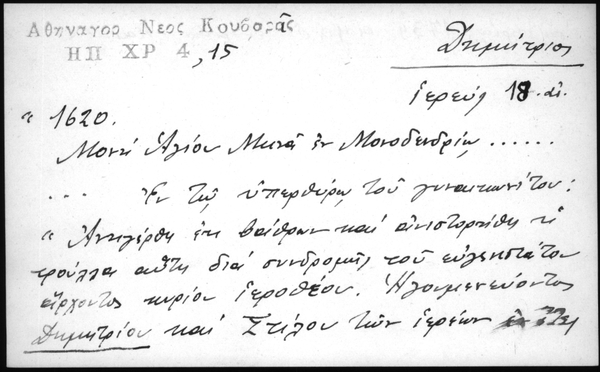 Αθηναγορ Νεος Κουβαρᾶς
ΗΠ ΧΡ 4, 15
Δημήτριος
ἱερεύς 18 αἰ.
" 1620.
Μονή Ἁγίου Μηνᾶ ἐν Μονοδενδρίῳ ......
... Ἐν τῷ ὑπερθύρῳ τοῦ γυναικωνίτου:
" Ἀνηγέρθη ἐκ βάθρων καί ἀνιστορήθη ἡ
τρούλλα αὕτη διά συνδρομῆς τοῦ εὐγενεστάτου
ἄρχοντος κυρίου Ἱεροθέου. Ἡγουμενεύοντος
Δημητρίου καί Στίλου τῶν ἱερέων